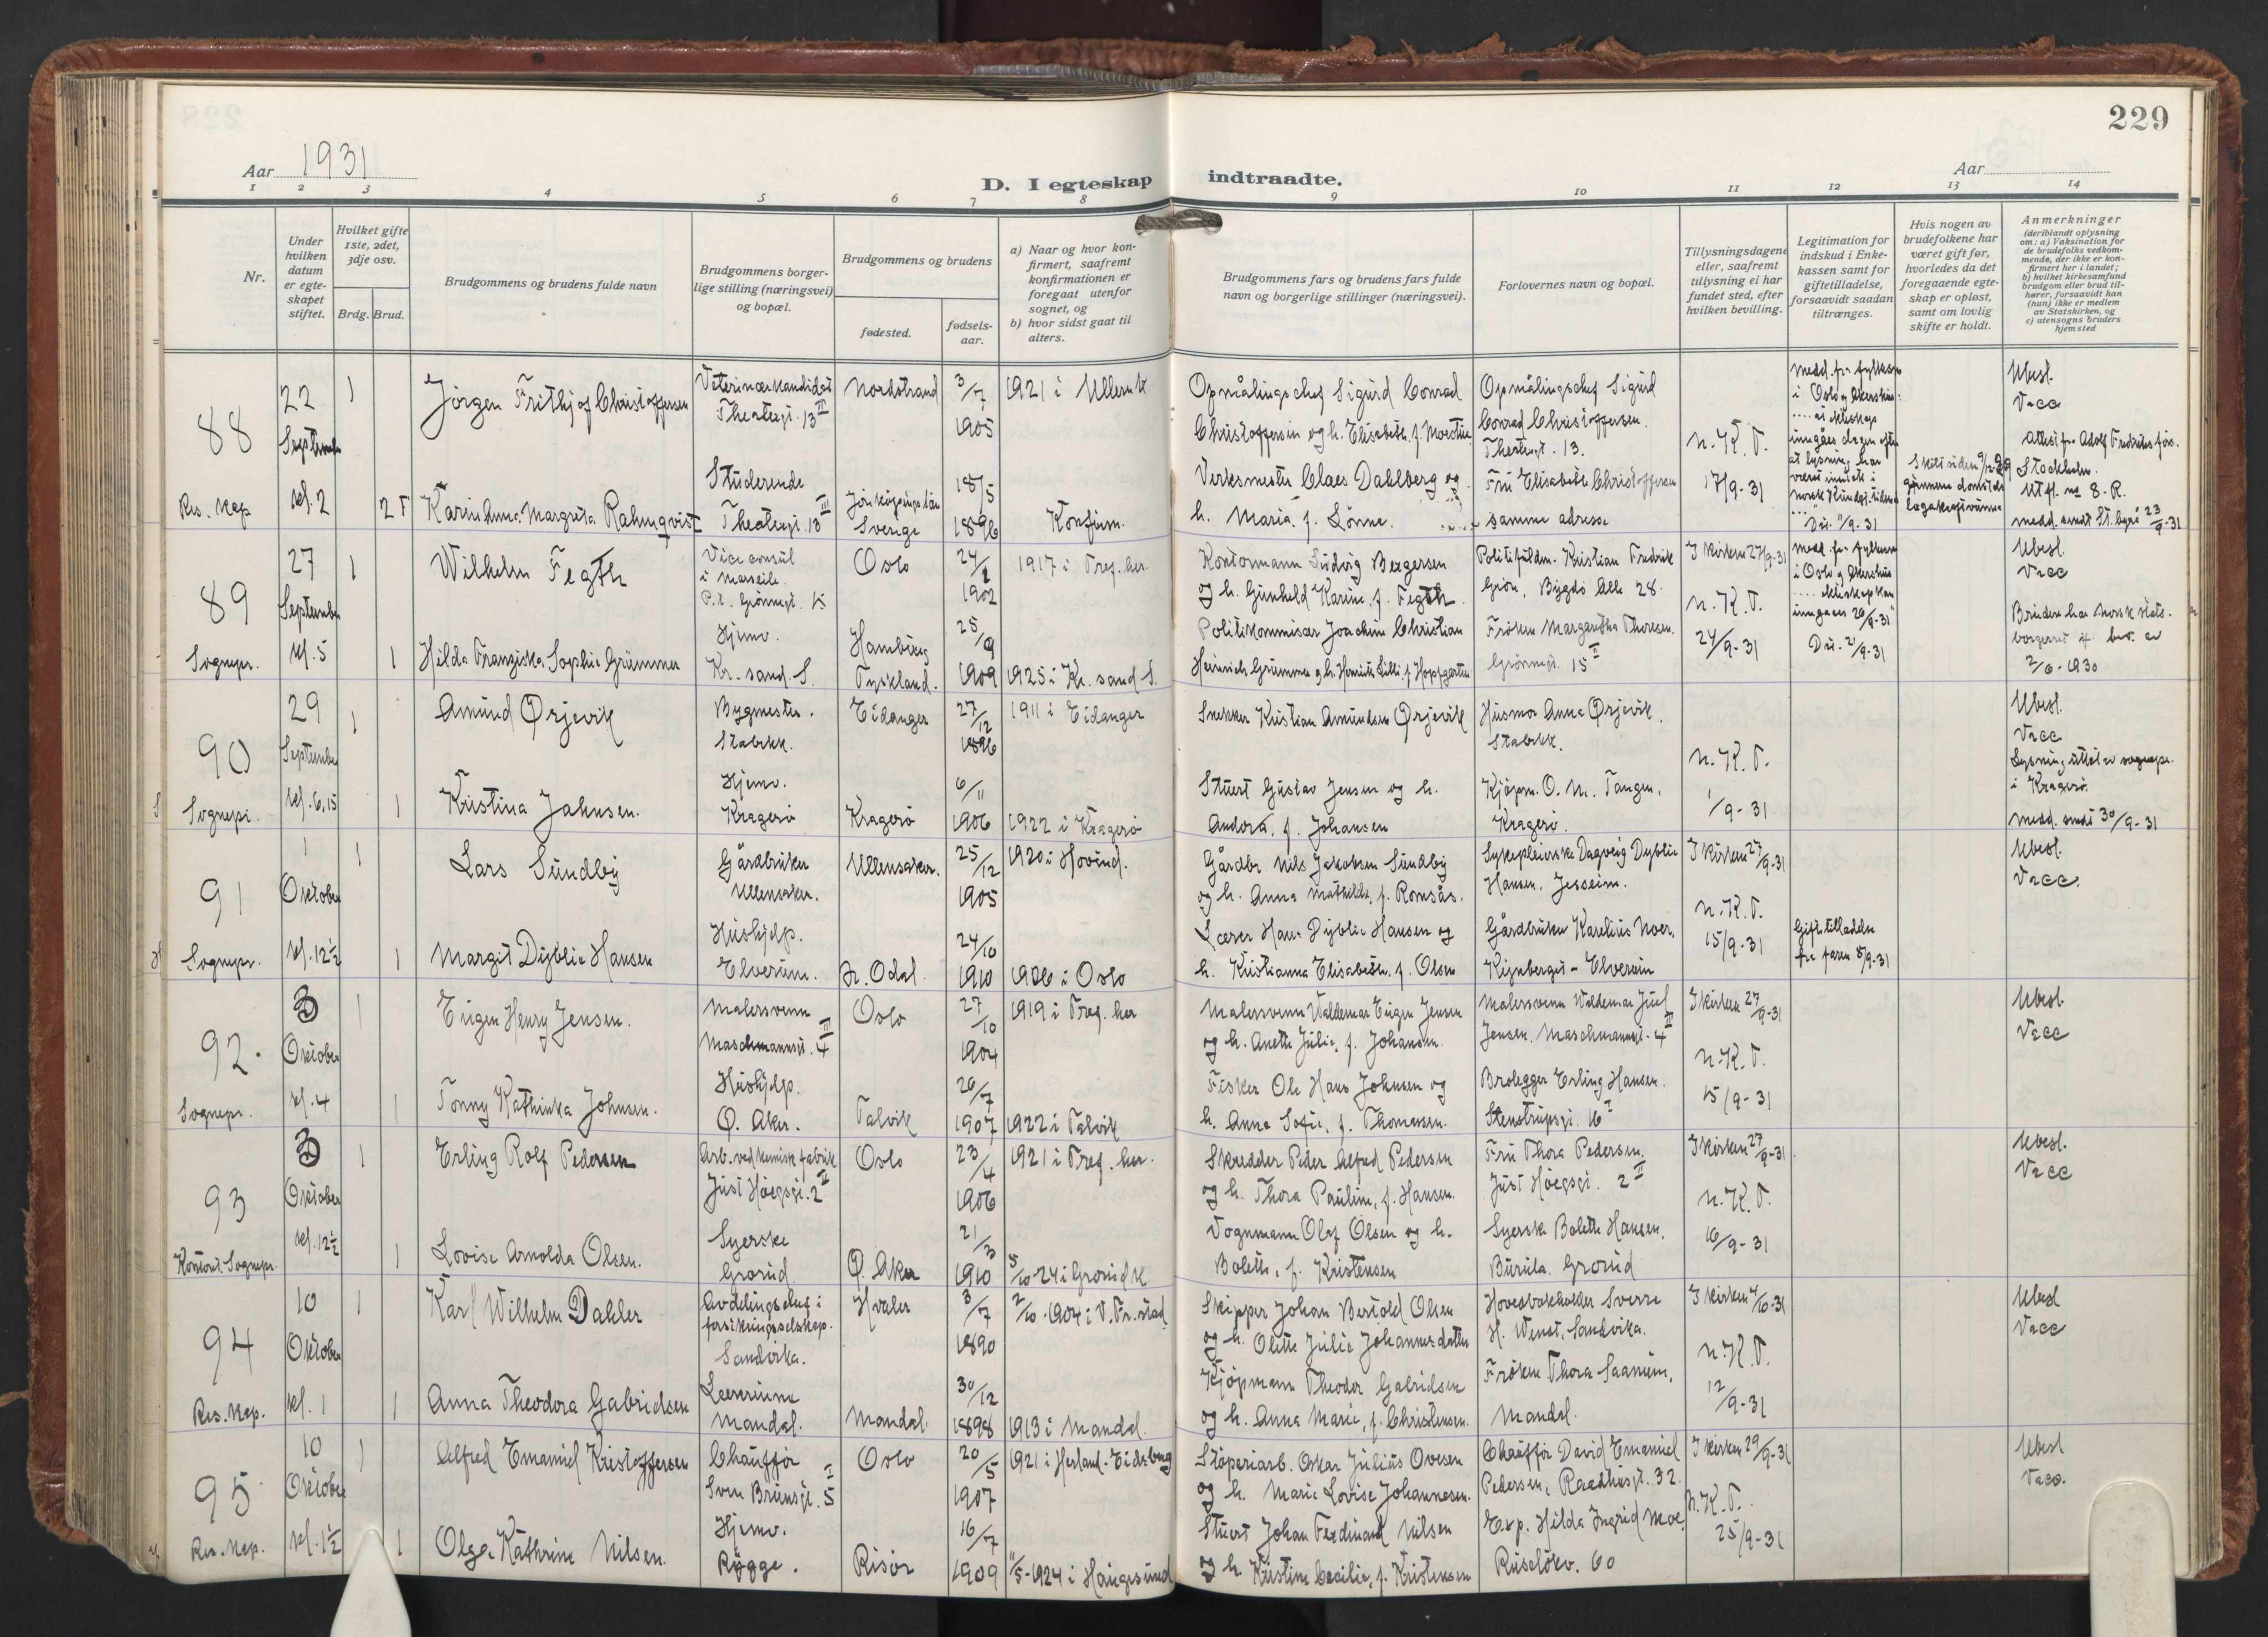 229
Aar 1931
D. I egteskap indtraadte.
Aar
1 2 3 4 5 6 7 8 9 10 11 12 13 14
Nr.
Under hvilken datum er egteskapet stiftet.
Hvilket gifte 1ste, 2det, 3dje osv.
Brdg. Brud.
Brudgommens og brudens fulde navn
Brudgommens borgerlige stilling (næringsvei) og bopæl.
Brudgommens og brudens
fødested.
fødselsaar.
a) Naar og hvor konfirmert, saafremt konfirmationen er foregaat utenfor sognet, og
b) hvor sidst gaat til alters.
Brudgommens fars og brudens fars fulde navn og borgerlige stillinger (næringsvei).
Forlovernes navn og bopæl.
Tillysningsdagene eller, saafremt tillysning ei har fundet sted, efter hvilken bevilling.
Legitimation for indskud i Enkekassen samt for giftetilladelse, forsaavidt saadan tiltrænges.
Hvis nogen av brudefolkene har været gift før, hvorledes da det foregaaende egteskap er opløst, samt om lovlig skifte er holdt.
Anmerkninger (deriblandt oplysning om: a) Vaksination for de brudefolks vedkommende, der ikke er konfirmert her i landet; b) hvilket kirkesamfund brudgom eller brud tilhører, forsaavidt han (hun) ikke er medlem av Statskirken, og c) utensogns bruders hjemsted
88
22 September kl. 2
Res. kap.
1
Jörgen Frithjof Christoffersen
Veterinærkandidat Theatergt. 13 III
Nordstrand
3/7 1905
1921 i Ullern k
Opmålingschef Sigurd Conrad Christoffersen og h. Elisabeth, f. Moestue
Opmålingschef Sigurd Conrad Christoffersen. Theatergt. 13.
n.K.T.
17/9-31
Ubesl.
Vacc
Karin Anna Margreta Rahmqvist
Studerende Theatergt. 13 III
Jönköpings län Sverige
18/5 1896
Konfirm.
Verksmester Claes Dahlberg og h. Maria, f. Lönne.
Fru Elisabeth Christoffersen samme adresse
Attest fra Adolf Fredriks förs. Stockholm.
89
27 September kl. 5
Sognepr.
1
Wilhelm Fegth
Vicekonsul i Marseille. P.t. Grönnegt. 15
Oslo
1902
1917 i Tref. her.
Kontormann Ludvig Bergersen og h. Gunhild Karine, f. Fegth.
Politifuldm. Kristian Fredrik Grön, Bygdö Alle 28.
I kirken 27/9-31
n.K.T.
24/9-31
Ubesl.
Vacc
1
Hilda Franziska Sophie Grümmer
Hjemv. Kr.sand S.
Hamburg Tyskland.
25/9 1909
1925 i Kr.sand S.
Politikommisær Joachim Christian Heinrich Grümmer og h. Henriette Lilli, f. Hopfgarten
Fröken Margaretha Thoresen. Grönnegt. 15 II
Bruden har norsk statsborgerrett if. bev. av 2/6-1930
90
29 September kl. 6,15
Sognepr.
1
Amund Ørjevik
Bygmester. Stabekk.
Eidanger
27/12 1896
1911 i Eidanger
Snekker Kristian Amundsen Ørjevik
Husmor Anna Ørjevik. Stabekk.
n.K.T.
1/9-31
Ubesl.
Vacc
Lysning uttat av sognepr. i Kragerö.
medd. sendt 30/9-31
1
Kristina Jahnsen.
Hjemv. Kragerö
Kragerö
6/11 1906
1922 i Kragerö
Stuert Gustav Jensen og h. Andora, f. Johansen
Kjöpm. O. N. Tangen, Kragerö.
91
1 Oktober kl. 12½
Sognepr.
1
Lars Sundby
Gårdbruker Ullensaker.
Ullensaker.
25/12 1905
1920 i Hovind.
Gårdbr Nils Jakobsen Sundby og h. Anna Mathilde, f. Romsås.
Sykepleierske Dagveig Dyblie Hansen, Jessheim.
I kirken 27/9-31
n.K.T.
15/9-31
Ubesl.
Vacc.
1
Margit Dyblie Hansen
Hushjelp. Elverum.
N. Odal.
24/10 1910
1926 i Oslo
Lærer Hans Dyblie Hansen og h. Kristianna Elisabeth, f. Olsen
Gårdbruker Karelius Noer, Elverum
Giftetilladelse fra faren 8/9-31
92.
3 Oktober kl. 4
Sognepr.
1
Eugen Henry Jensen.
Malersvenn Maschmannsgt. 4 III
Oslo
27/10 1904
1919 i Tref. her
Malersvenn Valdemar Eugen Jensen og h. Anette Julie, f. Johansen.
Malersvenn Waldemar Juul Jensen. Maschmannsgt. 4 III
I kirken 27/9-31
n.K.T.
15/9-31
Ubesl.
Vacc
1
Tonny Kathinka Johnsen.
Hushjelp. Ø. Aker.
Talvik
26/7 1907
1922 i Talvik
Fisker Ole Hans Johnsen og h. Anna Sofie, f. Thomassen.
Brolegger Erling Hansen. Stenstrupsgt. 16 I
93
3 Oktober kl. 12½
Konst. Sognepr.
1
Erling Rolf Pedersen
Arb. ved kemisk fabrik Just Höegsgt. 2 II
Oslo
23/4 1906
1921 i Tref. her.
Skredder Peder Alfred Pedersen og h. Thora Pauline, f. Hansen.
Fru Thora Pedersen. Just Höegsgt. 2 II
I kirken 27/9-31
n.K.T.
16/9-31
Ubesl.
Vacc
1
Lovise Arnolda Olsen.
Syerske Grorud
Ø. Aker
21/3 1910
5/10-24 i Grorud k
Vognmann Olaf Olsen og h. Bolette, f. Kristensen
Syerske Bolette Hansen, Grorud
94
10 Oktober kl. 1
Res. kap.
1
Karl Wilhelm Dahler
Avdelingschef i forsikringsselskap. Sandvika.
Hvaler
3/7 1890
2/10-1904 i V. Fr.stad
Skipper Johan Bertold Olsen og h. Olette Julie Johannesdatter
Hovedbokholder Sverre H. Wenst, Sandvika.
I kirken 4/10-31
n.K.T.
12/9-31
Ubesl
Vacc
1
Anna Theodora Gabrielsen
Lærerinne Mandal.
Mandal.
30/12 1898
1913 i Mandal.
Kjöpmann Theodor Gabrielsen og h. Anna Marie, f. Christensen.
Fröken Thora Saanum, Mandal.
95
10 Oktober kl. 1½
Res. kap.
1
Alfred Emanuel Kristoffersen
Chauffør Sven Brunsgt. 5 I
Oslo
20/5 1907
1921 i Herland. Eidsberg
Stöperiarb. Oskar Julius Ovesen og h. Marie Lovise Johannesen.
Chauffør David Emanuel Pedersen, Raadhusgt. 32.
I kirken 29/9-31
n.K.T.
25/9-31
Ubesl
Vacc.
1
Olga Kathrine Nilsen.
Hjemv. Rygge.
Risör
16/7 1909
11/5-1924 i Haugesund
Stuert Johan Ferdinand Nilsen og h. Kristine Cecilie, f. Kristensen
Exp. Hilda Ingrid Moe. Ruselökv. 60